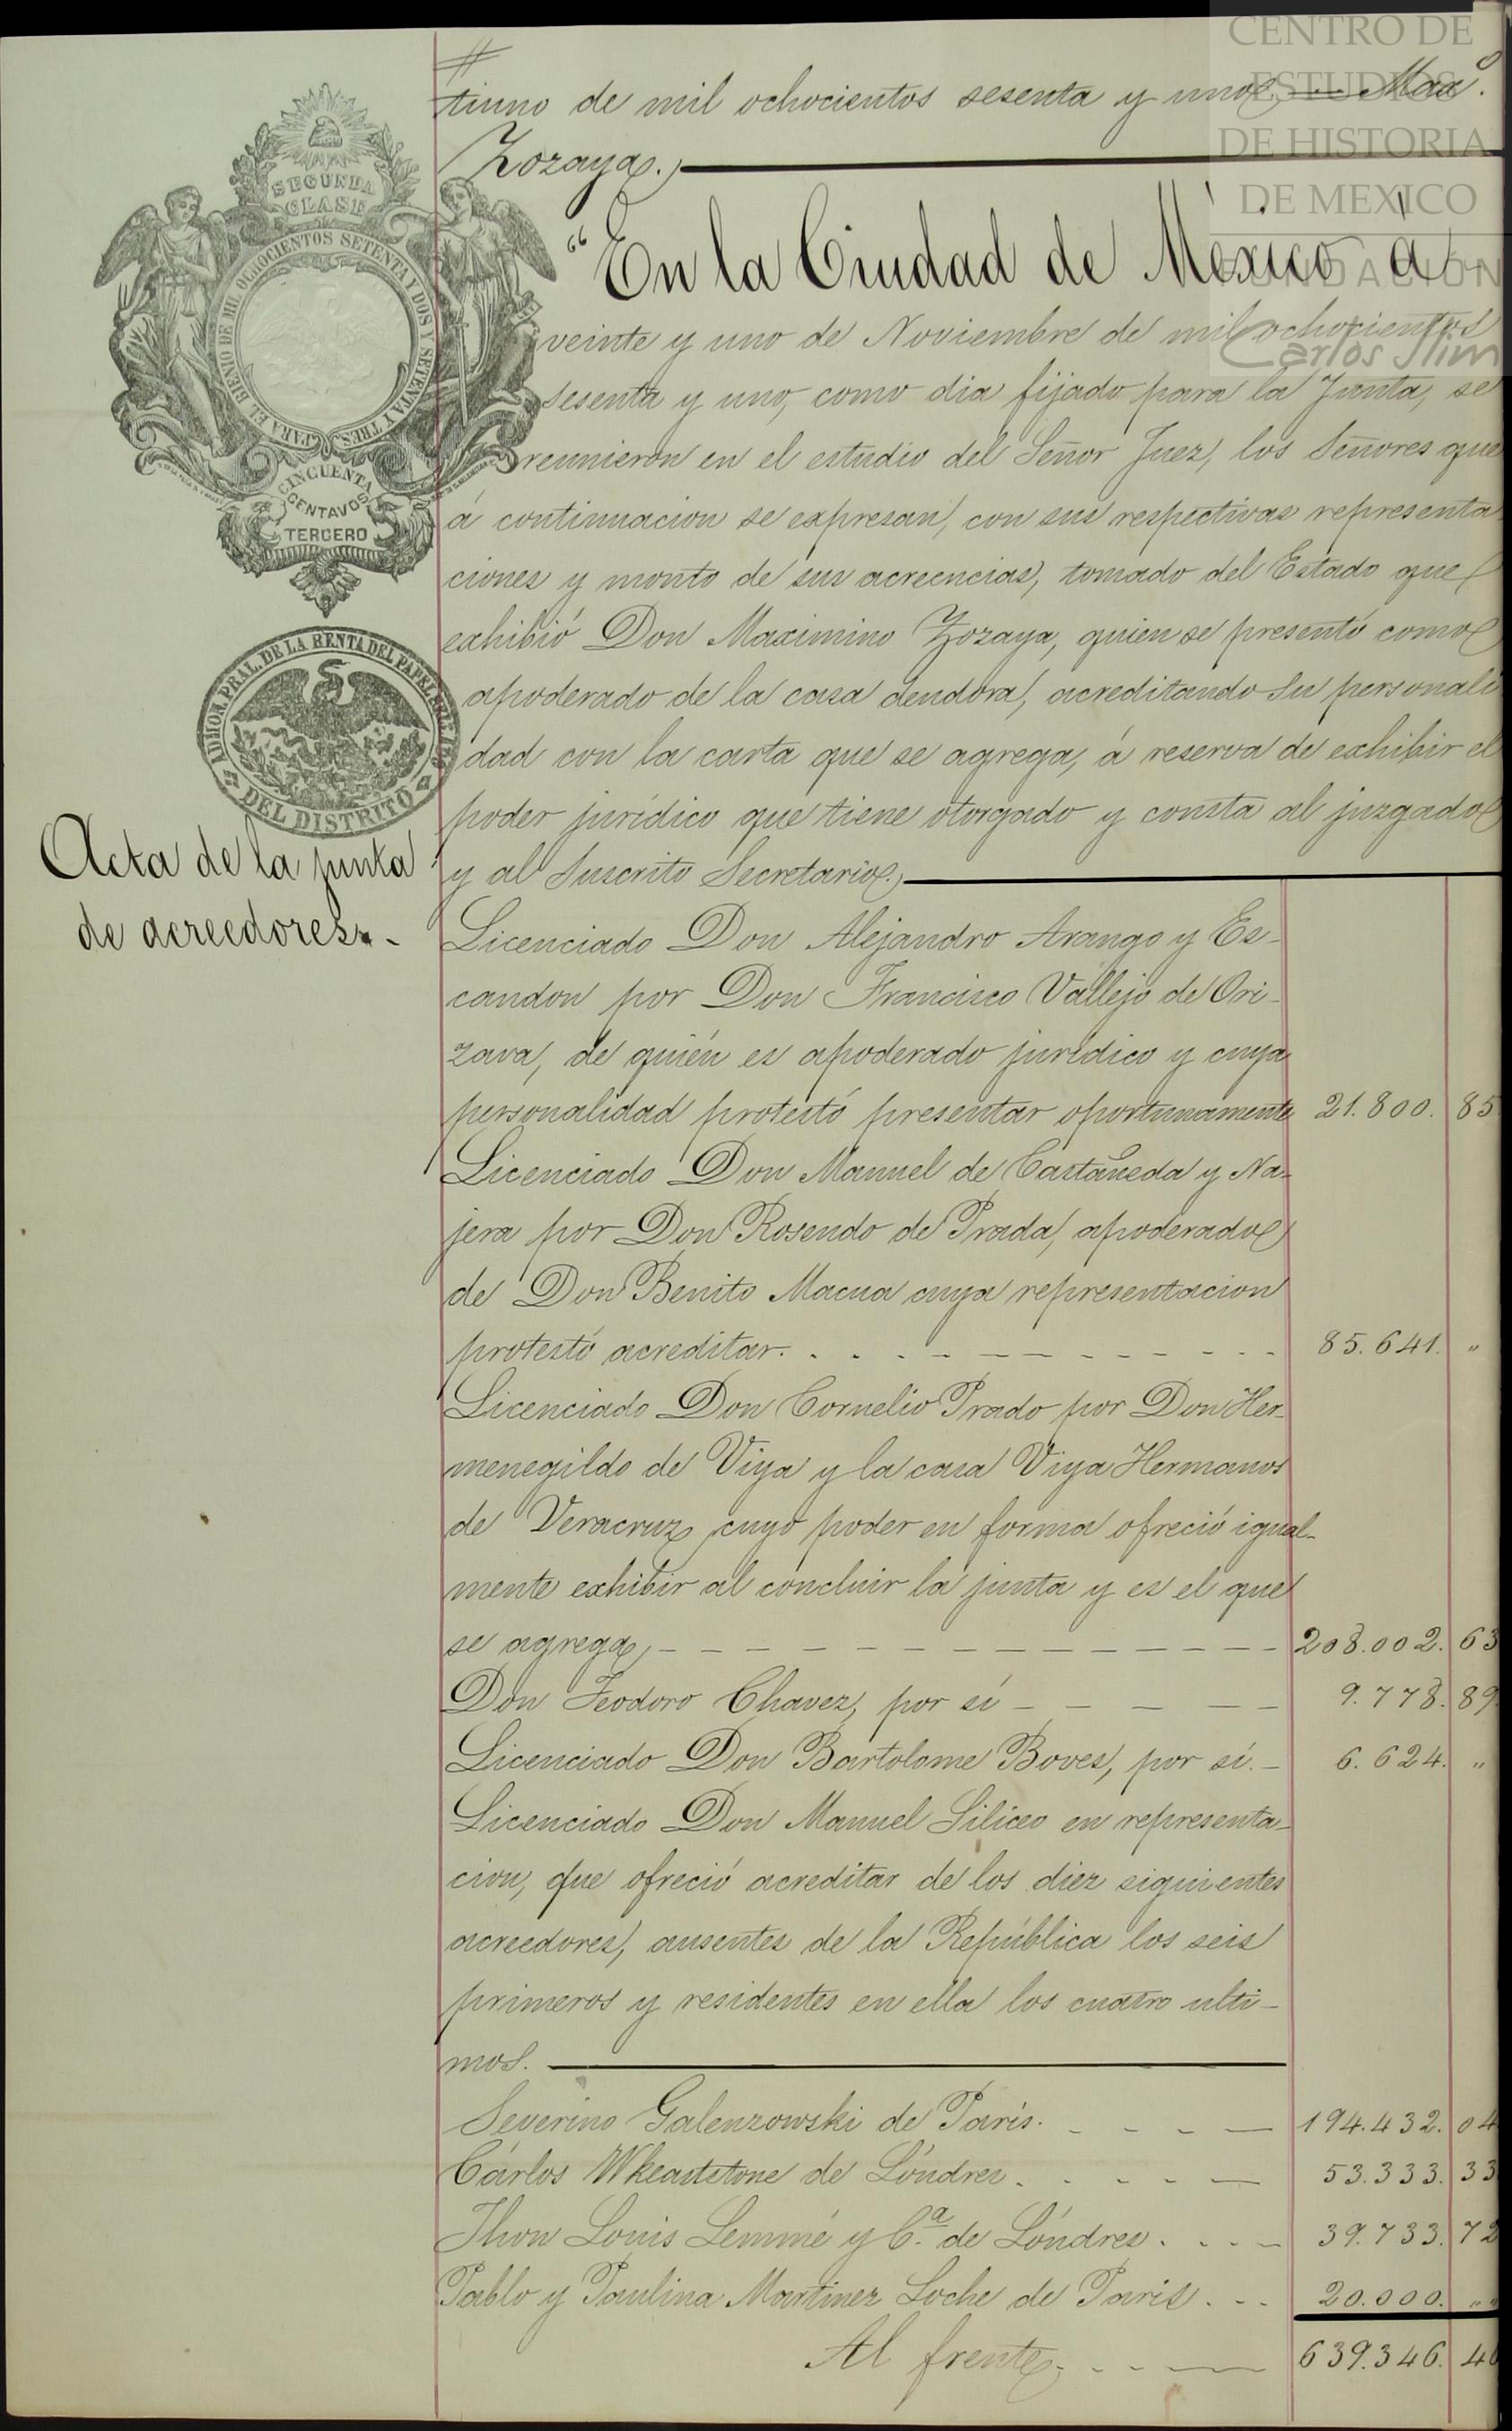 CENTRO DE
ESTUDIOS
DE HISTORIA
DE MEXICO
FUNDACION
Carlos Slim
tiuno de mil ochocientos sesenta y uno — Maxº.
Zozaya.
SEGUNDA
CLASE
PARA EL BIENIO DE MIL OCHOCIENTOS SETENTA Y DOS Y SETENTA Y TRES
CINCUENTA
CENTAVOS
TERCERO
ADMON. PRAL. DE LA RENTA DEL PAPEL
DEL DISTRITO
Acta de la junta
de acreedores.-
"En la Ciudad de México, á
veinte y uno de Noviembre de mil ochocientos
sesenta y uno, como dia fijado para la Junta, se
reunieron en el estudio del Señor Juez, los Señores que
á continuacion se expresan, con sus respectivas representa
ciones y monto de sus acreencias, tomado del Estado que
exhibió Don Maximino Zozaya, quien se presentó como
apoderado de la casa deudora, acreditando su personali
dad con la carta que se agrega, á reserva de exhibir el
poder jurídico que tiene otorgado y consta al juzgado
y al Suscrito Secretario.
Licenciado Don Alejandro Arango y Es-
candon por Don Francisco Vallejo de Ori-
zava, de quién es apoderado jurídico y cuya
personalidad protestó presentar oportunamente 21.800. 85
Licenciado Don Manuel de Castañeda y Na-
jera por Don Rosendo de Prada, apoderado
de Don Benito Macua cuya representacion
protestó acreditar. . . . - - - - - - - - 85.641. "
Licenciado Don Cornelio Prado por Don Her-
menegildo de Viya y la casa Viya Hermanos
de Veracruz, cuyo poder en forma ofreció igual-
mente exhibir al concluir la junta y es el que
se agrega, - - - - - - - - - - - - 208.002. 63
Don Teodoro Chavez, por sí - - - - - 9.778. 89
Licenciado Don Bartolome Boves, por sí. - 6.624. "
Licenciado Don Manuel Siliceo en representa-
cion, que ofreció acreditar de los diez siguientes
acreedores, ausentes de la República los seis
primeros y residentes en ella los cuatro ulti-
mos.
Severino Galenzowski de Paris. - - - - 194.432. 04
Cárlos Wheatstone de Lóndres. - - - - 53.333. 33
Jhon Louis Lemmé y Cª. de Lóndres. . - - 39.733. 72
Pablo y Paulina Martinez Loche de Paris. - - 20.000. "
Al frente. - - - 639.346. 46